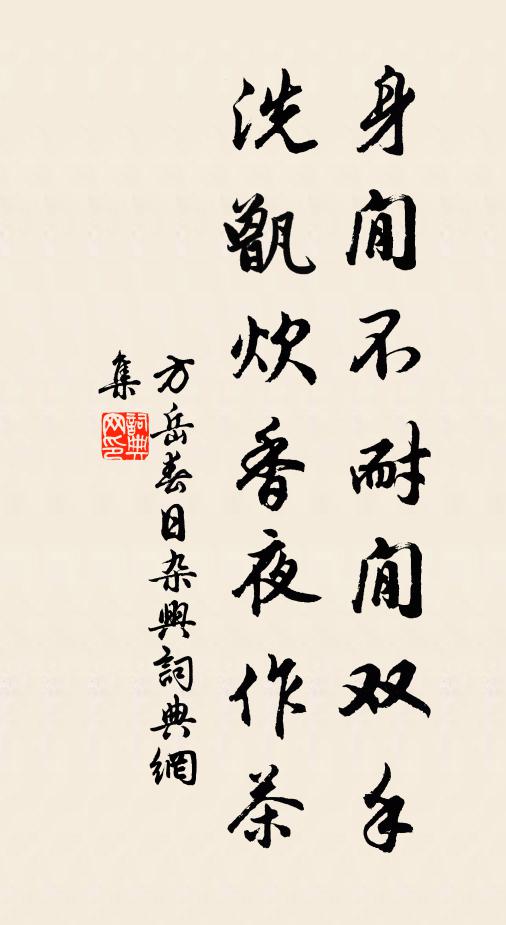 身閒不耐閒双手
洗甑炊香夜作茶
方岳春日杂興詞典網
集
詞典
网印